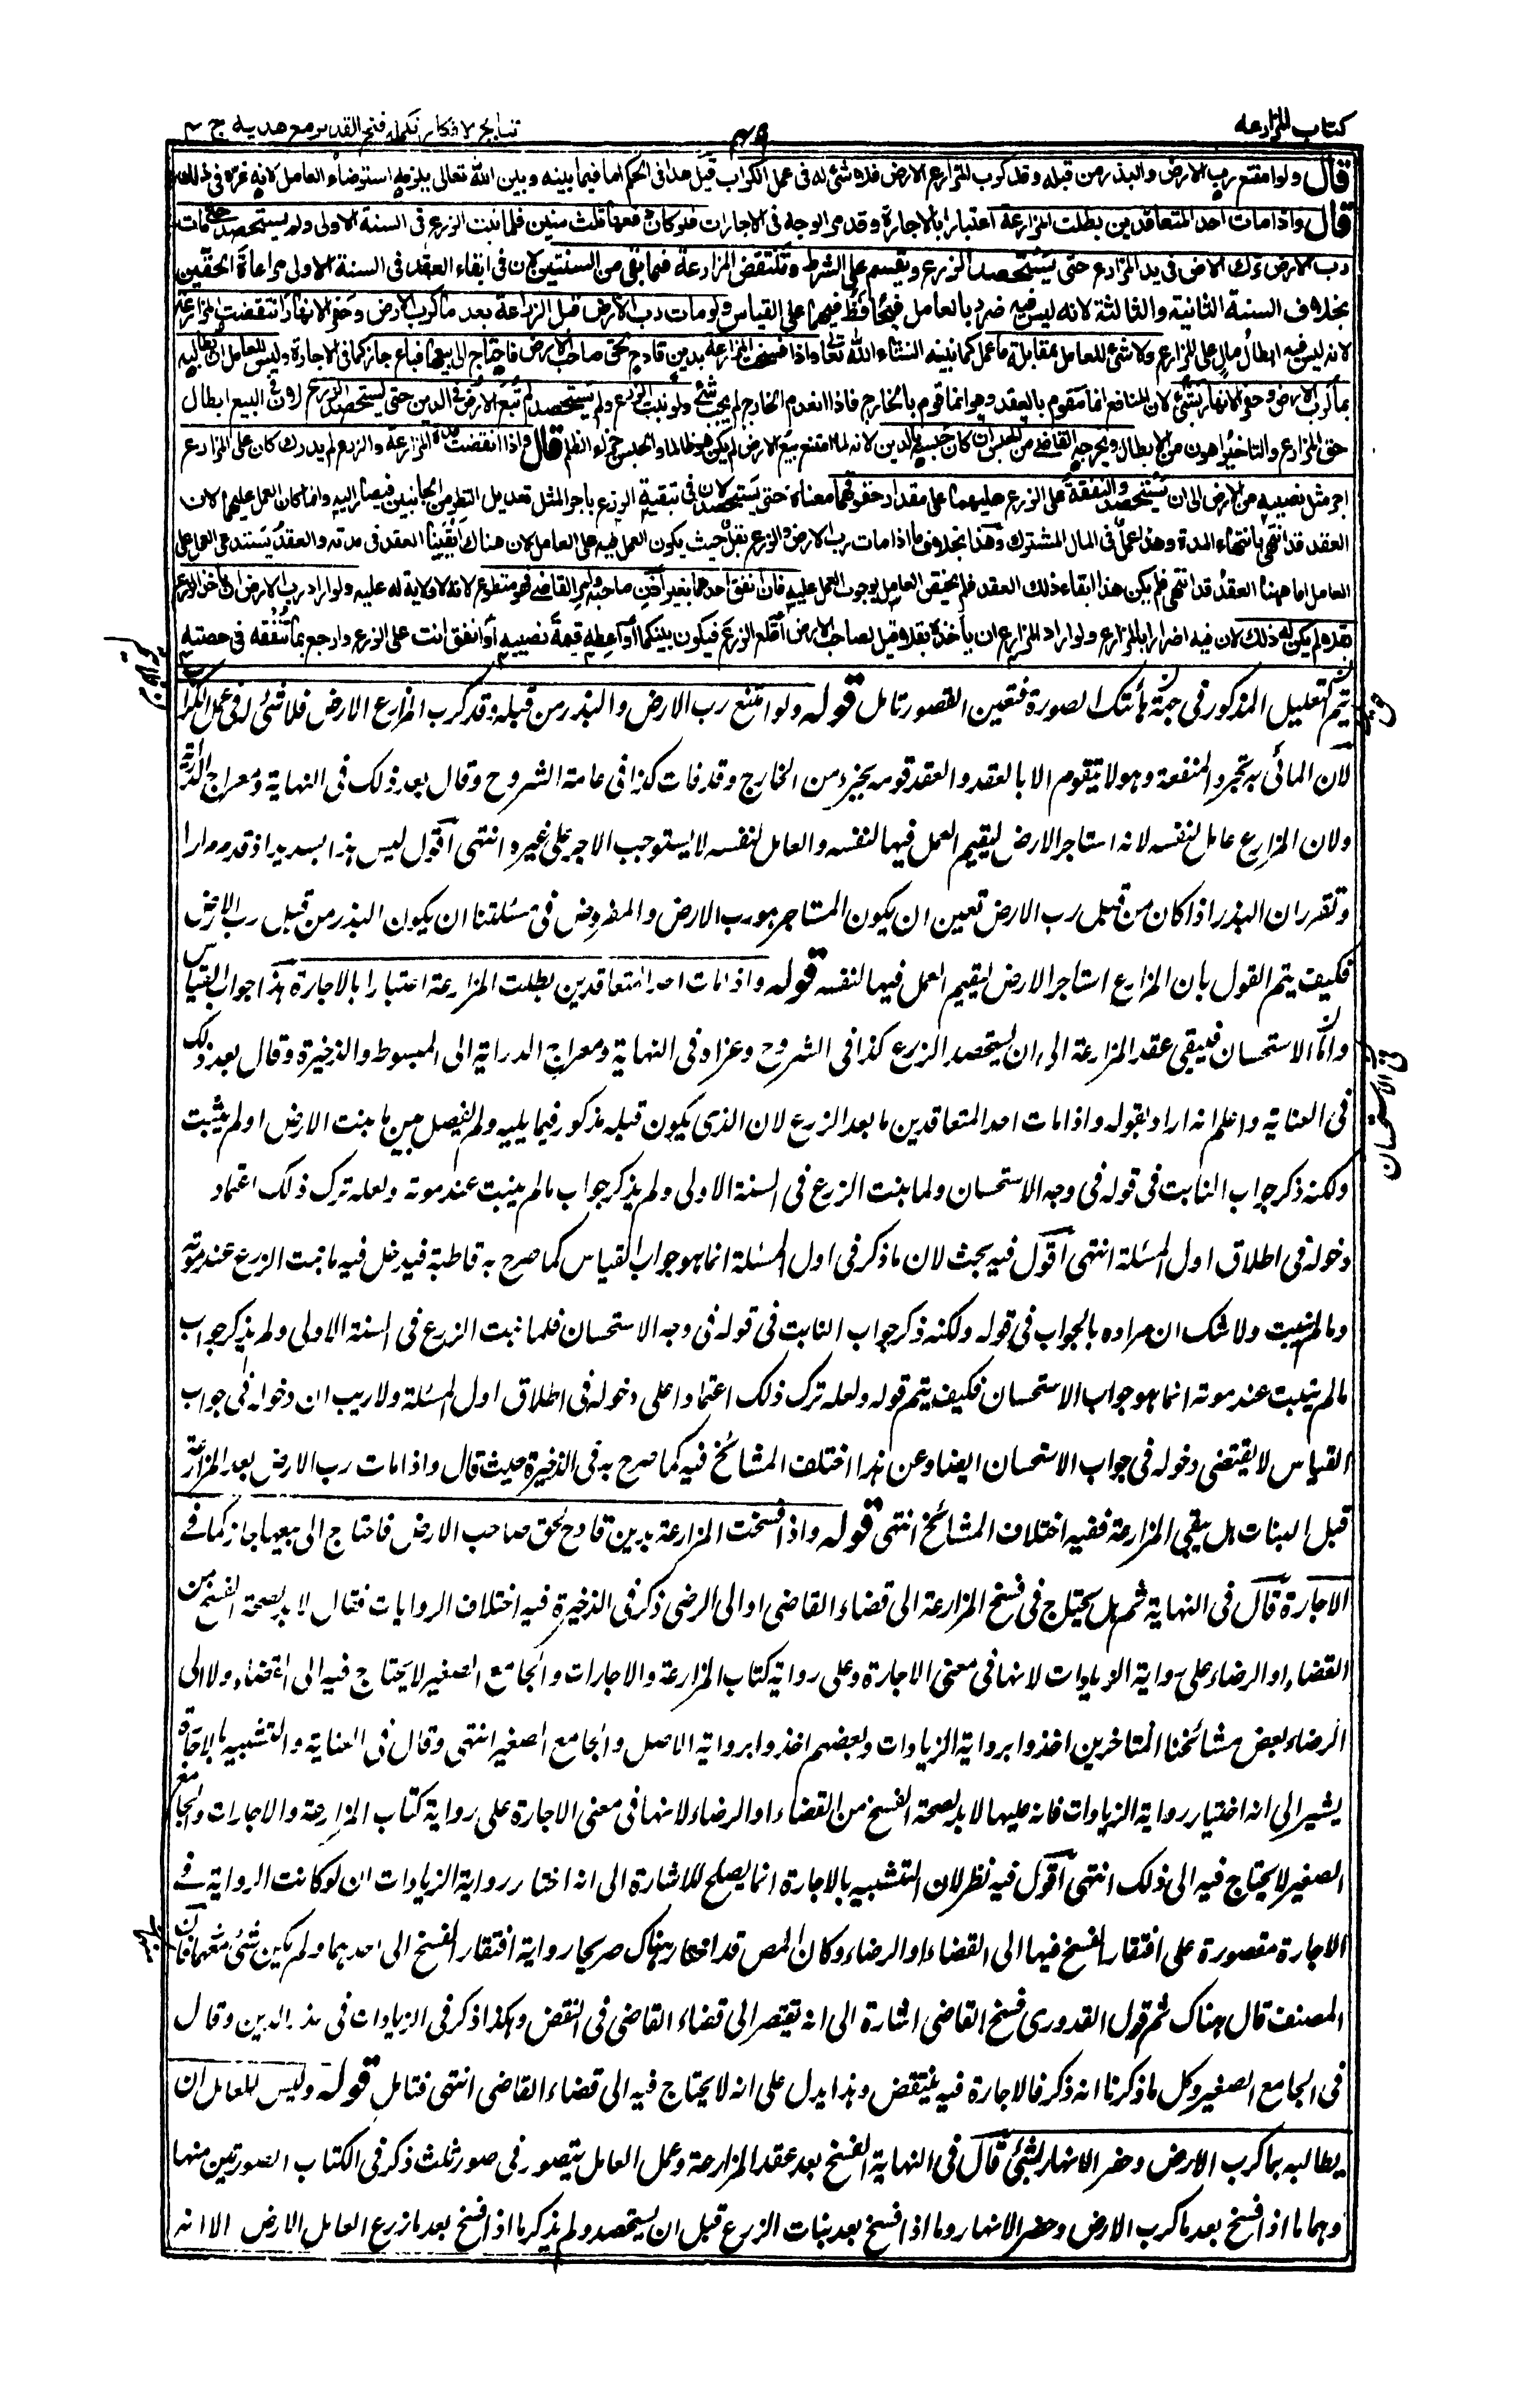 كتاب المزارعة
٤٩
نتايج الافكار تكمله فتح القدير مع هدايه ج ٤
قال ولو امتنع رب الارض والبذر من قبله وقد كرب المزارع الارض فلا شئ له فى عمل الكراب قيل هذا فى الحكم اما فيما بينه وبين الله تعالى يلزمه استرضاء العامل لانه غره فى ذلك
قال واذا مات احد المتعاقدين بطلت المزارعة اعتبارا بالاجارة وقد مر الوجه فى الاجارات فلو كان دفعها ثلث سنين فلما نبت الزرع فى السنة الاولى ولم يستحصد حتى مات
رب الارض ترك الارض فى يد المزارع حتى يستحصد الزرع ويقسم على الشرط وتنتقض المزارعة فيما بقى من السنتين لان فى ابقاء العقد فى السنة الاولى مراعاة الحقين
بخلاف السنة الثانية والثالثة لانه ليس فيه ضرر بالعامل فيحافظ فيهما على القياس ولو مات رب الارض قبل الزراعة بعد ما كرب الارض وحفر الانهار انتقضت المزارعة
لانه ليس فيه ابطال مال على المزارع ولا شئ للعامل بمقابلة ما عمل كما نبينه انشاء الله تعالى واذا فسخت المزارعة بدين فادح لحق صاحب الارض فاحتاج الى بيعها فباع جاز كما فى الاجارة وليس للعامل ان يطالبه
بما كرب الارض وحفر الانهار بشئ لان المنافع انما تتقوم بالعقد وهو انما قوم بالخارج فاذا انعدم الخارج لم يجب شئ ولو نبت الزرع ولم يستحصد لم تبع الارض فى الدين حتى يستحصد الزرع لان فى البيع ابطال
حق المزارع والتاخير اهون من الابطال ويخرجه القاضى من الحبس ان كان حبسه بالدين لانه لما امتنع بيع الارض لم يكن هو ظالما والحبس جزاء الظلم قال واذا انقضت مدة المزارعة والزرع لم يدرك كان على المزارع
اجر مثل نصيبه من الارض الى ان يستحصد والنفقة على الزرع عليهما على مقدار حقوقهما معناه حتى يستحصد لان فى تبقية الزرع باجر المثل تعديل النظر من الجانبين فيصار اليه وانما كان العمل عليهما لان
العقد قد انتهى بانتهاء المدة وهذا عمل فى المال المشترك وهذا بخلاف ما اذا مات رب الارض والزرع بقل حيث يكون العمل فيه على العامل لان هناك ابقينا العقد فى مدته والعقد يستدعى العمل على
العامل اما ههنا العقد قد انتهى فلم يكن هذا ابقاء ذلك العقد فلم يختص العامل بوجوب العمل عليه فان انفق احدهما بغير اذن صاحبه وامر القاضى فهو متطوع لانه لا ولاية له عليه ولو اراد رب الارض ان ياخذ الزرع
بقلا لم يكن له ذلك لان فيه اضرارا بالمزارع ولو اراد المزارع ان ياخذه بقلا قيل لصاحب الارض اقلع الزرع فيكون بينكما او اعطه قيمة نصيبه او انفق انت على الزرع وارجع بما تنفقه فى حصته
يتم التعليل المذكور فى حق هاتيك الصورة فتعين القصور تامل قوله ولو امتنع رب الارض والبذر من قبله وقد كرب المزارع الارض فلا شئ له فى عمل الكراب
لان الماتى به مجرد المنفعة وهو لا يتقوم الا بالعقد والعقد قومه بجزء من الخارج وقد فات كذا فى عامة الشروح وقال بعد ذلك فى النهاية ومعراج الدراية
ولان المزارع عامل لنفسه لانه استاجر الارض ليقيم العمل فيها لنفسه والعامل لنفسه لا يستوجب الاجر على غيره انتهى اقول ليس هذا بسديد اذ قد مر مرارا
وتقرر ان البذر اذا كان من قبل رب الارض تعين ان يكون المستاجر هو رب الارض والمفروض فى مسئلتنا ان يكون البذر من قبل رب الارض
فكيف يتم القول بان المزارع استاجر الارض ليقيم العمل فيها لنفسه قوله واذا مات احد المتعاقدين بطلت المزارعة اعتبارا بالاجارة هذا جواب القياس
واما الاستحسان فيبقى عقد المزارعة الى ان يستحصد الزرع كذا فى الشروح وعزاه فى النهاية ومعراج الدراية الى المبسوط والذخيرة وقال بعد ذلك
فى العناية واعلم انه اراد بقوله واذا مات احد المتعاقدين ما بعد الزرع لان الذى يكون قبله مذكور فيما يليه ولم يفصل بين ما نبت الارض او لم ينبت
ولكنه ذكر جواب النابت فى قوله فى وجه الاستحسان ولما نبت الزرع فى السنة الاولى ولم يذكر جواب ما لم ينبت عند موته ولعله ترك ذلك اعتماد
دخوله فى اطلاق اول المسئلة انتهى اقول فيه بحث لان ما ذكر فى اول المسئلة انما هو جواب القياس كما صرح به قاطبة فيدخل فيه ما نبت الزرع عند موته
وما لم ينبت ولا شك ان مراده بالجواب فى قوله ولكنه ذكر جواب النابت فى قوله فى وجه الاستحسان فلما نبت الزرع فى السنة الاولى ولم يذكر جواب
ما لم ينبت عند موته انما هو جواب الاستحسان فكيف يتم قوله ولعله ترك ذلك اعتمادا على دخوله فى اطلاق اول المسئلة ولا ريب ان دخوله فى جواب
القياس لا يقتضى دخوله فى جواب الاستحسان ايضا وعن هذا اختلف المشائخ فيه كما صرح به فى الذخيرة حيث قال واذا مات رب الارض بعد المزارعة
قبل النبات هل يبقى المزارعة ففيه اختلاف المشائخ انتهى قوله واذا فسخت المزارعة بدين فادح لحق صاحب الارض فاحتاج الى بيعها جاز كما فى
الاجارة قال فى النهاية ثم هل يحتاج فى فسخ المزارعة الى قضاء القاضى او الى الرضى ذكر فى الذخيرة فيه اختلاف الروايات فقال لا بد لصحة الفسخ من
القضاء او الرضاء على رواية الزيادات لانها فى معنى الاجارة وعلى رواية كتاب المزارعة والاجارات والجامع الصغير لا يحتاج فيه الى القضاء ولا الى
الرضاء وبعض مشائخنا المتاخرين اخذوا برواية الزيادات وبعضهم اخذوا برواية الاصل والجامع الصغير انتهى وقال فى العناية والتشبيه بالاجارة
يشير الى انه اختيار رواية الزيادات فانه عليها لا بد لصحة الفسخ من القضاء او الرضاء لانها فى معنى الاجارة على رواية كتاب المزارعة والاجارات والجامع
الصغير لا يحتاج فيه الى ذلك انتهى اقول فيه نظر لان التشبيه بالاجارة انما يصلح للاشارة الى انه اختار رواية الزيادات ان لو كانت الرواية فى
الاجارة مقصورة على افتقار الفسخ فيها الى القضاء او الرضاء وكان المص قد اختار هناك صريحا رواية افتقار الفسخ الى احدهما ولم يكن شئ منهما فان
المصنف قال هناك ثم قول القدورى فسخ القاضى اشارة الى انه يفتقر الى قضاء القاضى فى النقض وهكذا ذكر فى الزيادات فى عذر الدين وقال
فى الجامع الصغير وكل ما ذكرنا انه ذكر فالاجارة فيه ينتقض وهذا يدل على انه لا يحتاج فيه الى قضاء القاضى انتهى فتامل قوله وليس للعامل ان
يطالبه بما كرب الارض وحفر الانهار بشئ قال فى النهاية الفسخ بعد عقد المزارعة وعمل العامل يتصور فى صور ثلث ذكر فى الكتاب الصورتين منها
وهما ما اذا فسخ بعد ما كرب الارض وحفر الانهار وما اذا فسخ بعد نبات الزرع قبل ان يستحصد ولم يذكر ما اذا فسخ بعد ما زرع العامل الارض الا انه